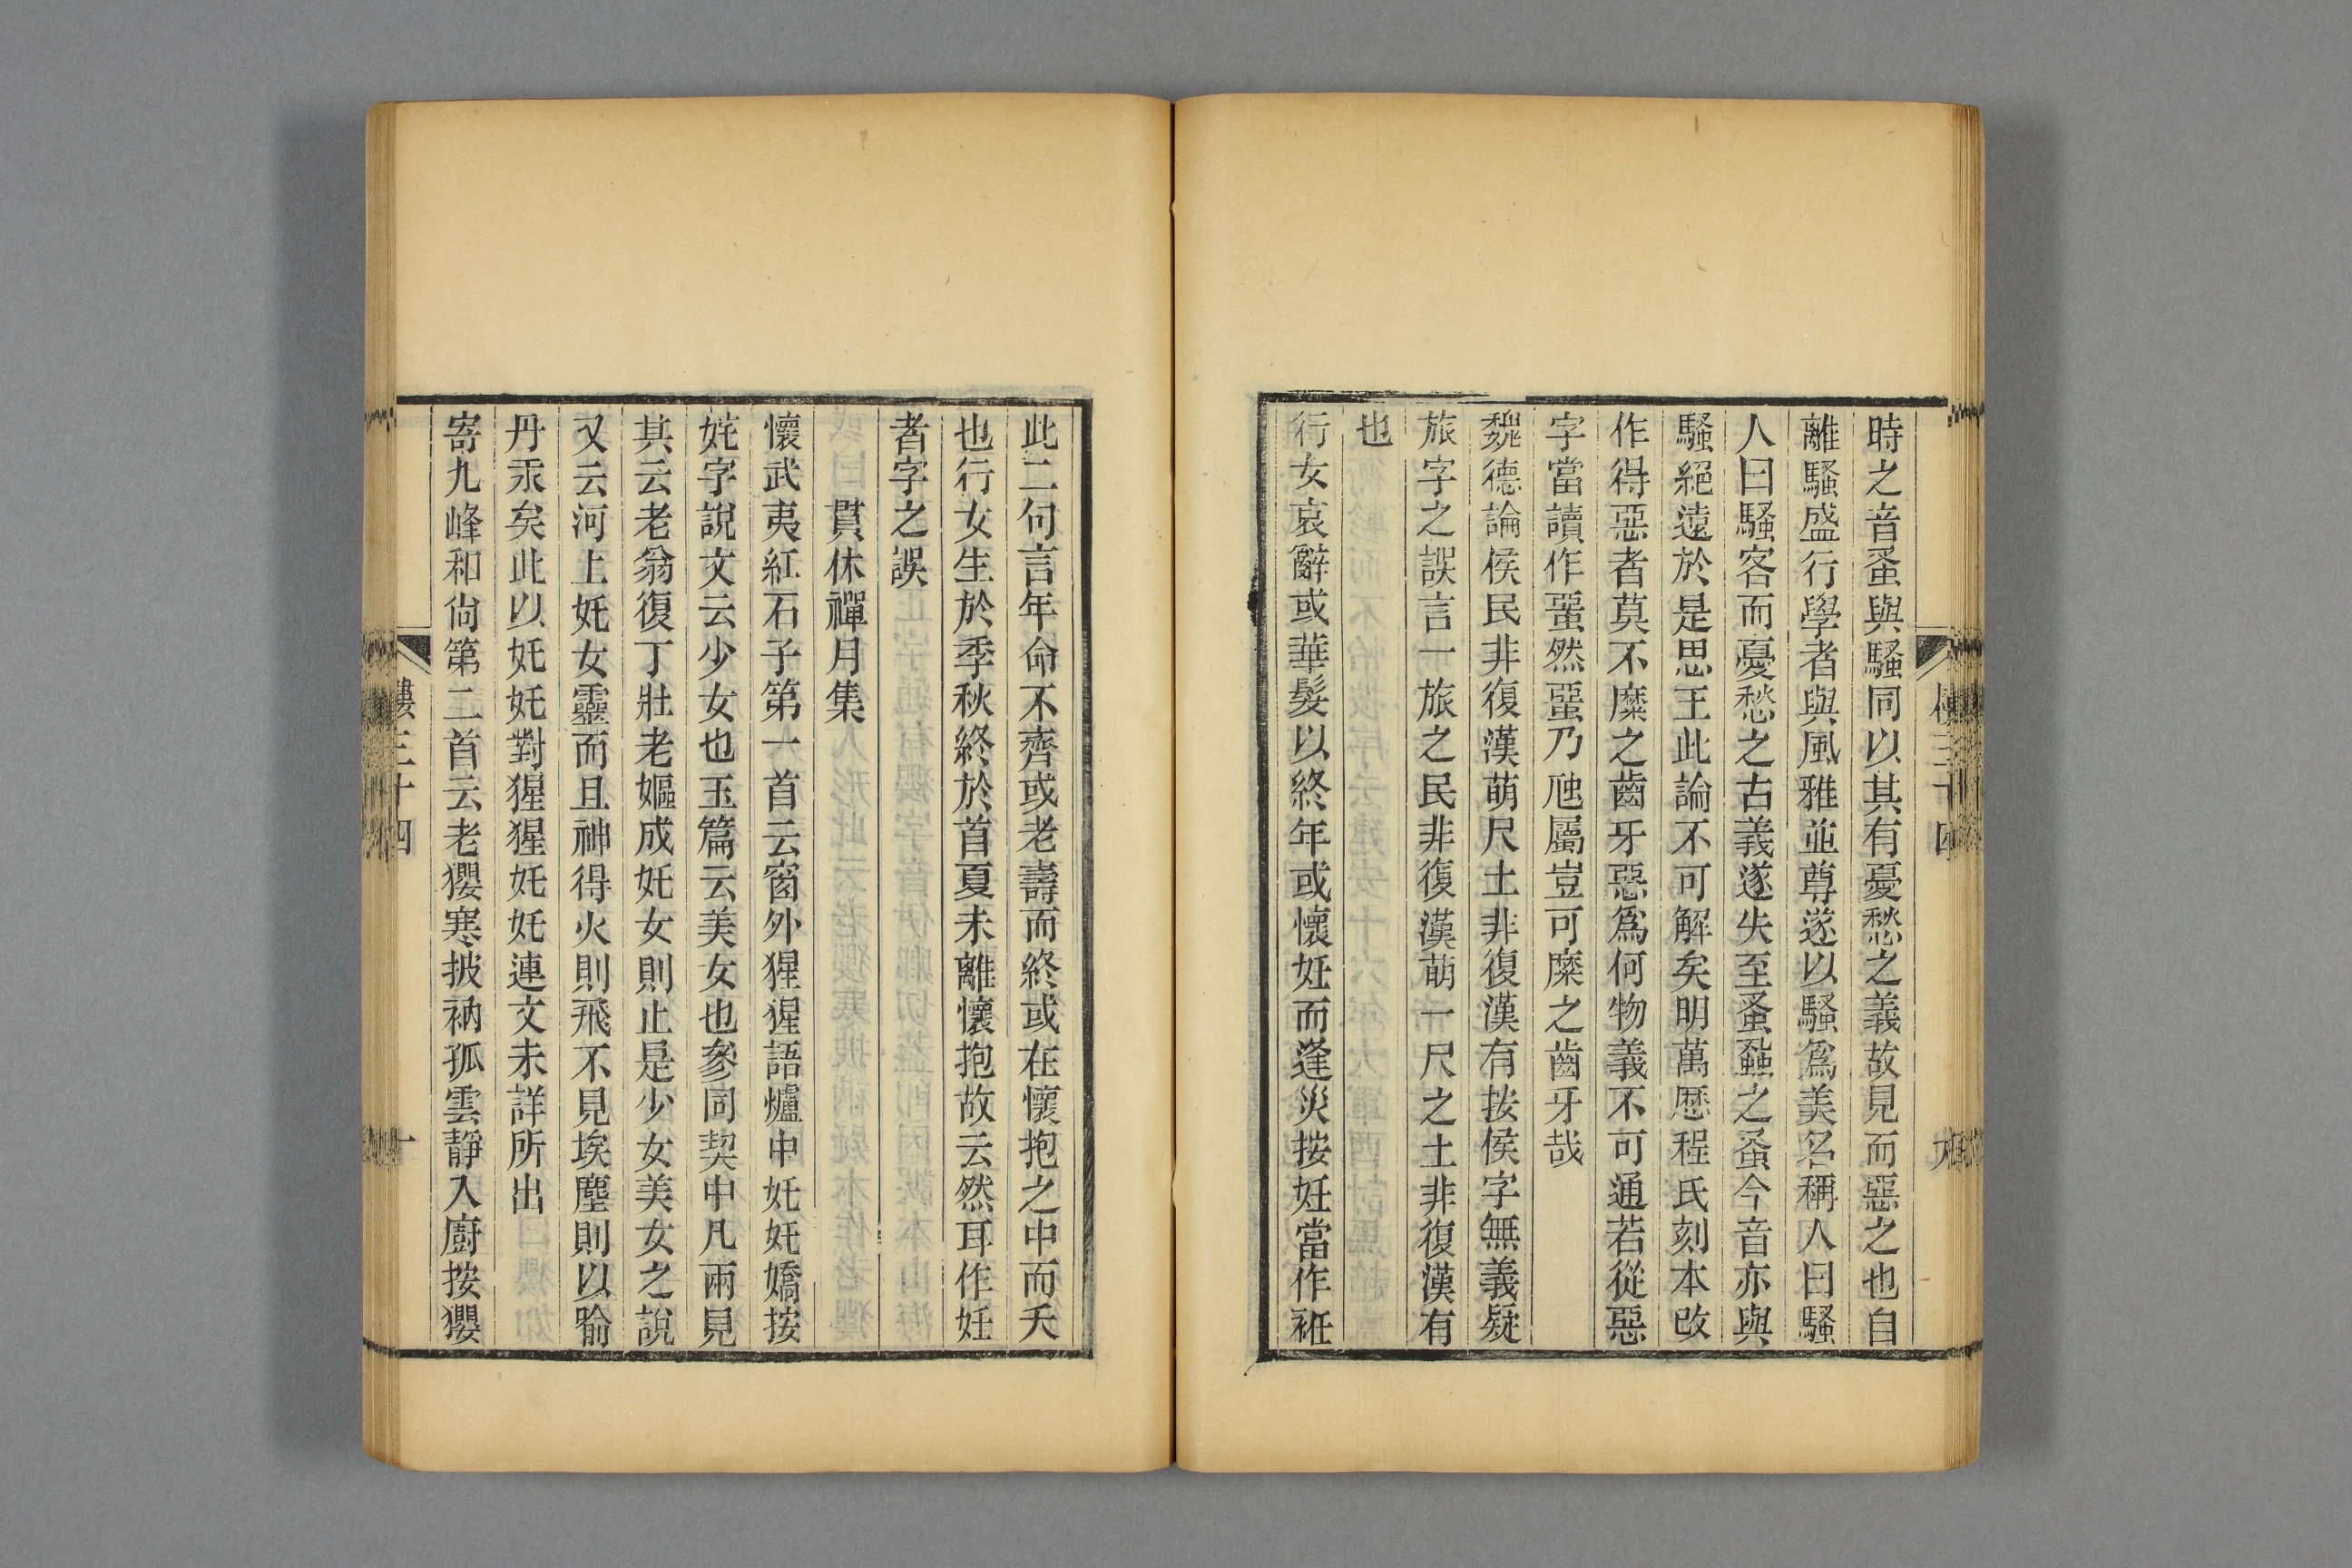 時之音蚤與騷同以其有憂愁之義故見而惡之也自
離騷盛行學者與風雅並尊遂以騷爲美名稱人曰騷
人曰騷客而憂愁之古義遂失至蚤蝨之蚤今音亦與
騷絕遠於是思王此論不可解矣明萬歷程氏刻本改
作得惡者莫不糜之齒牙惡爲何物義不可通若從惡
字當讀作蝁然蝁乃虺屬豈可糜之齒牙哉
魏德論侯民非復漢萌尺土非復漢有按侯字無義疑
旅字之誤言一旅之民非復漢萌一尺之土非復漢有
也
行女哀辭或華髮以終年或懷妊而逢災按妊當作衽
此二句言年命不齊或老壽而終或在懷抱之中而夭
也行女生於季秋終於首夏未離懷抱故云然耳作妊
者字之誤
貫休禪月集
懷武夷紅石子第一首云窗外猩猩語爐中奼奼嬌按
奼字說文云少女也玉篇云美女也參同契中凡兩見
其云老翁復丁壯老嫗成奼女則止是少女美女之說
又云河上奼女靈而且神得火則飛不見埃塵則以喻
丹汞矣此以奼奼對猩猩奼奼連文未詳所出
寄九峰和尙第二首云老玃寒披衲孤雲靜入廚按玃
樓三十四
十